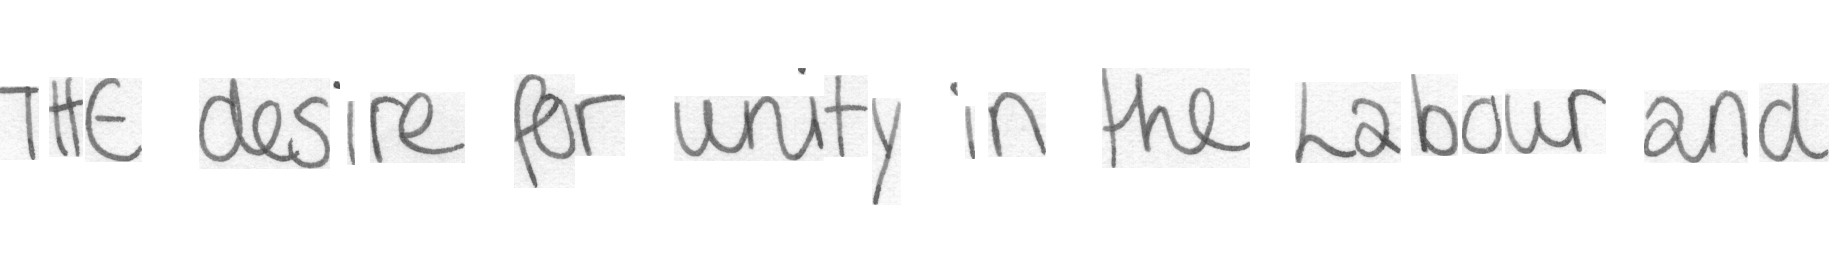 THE desire for unity in the Labour and